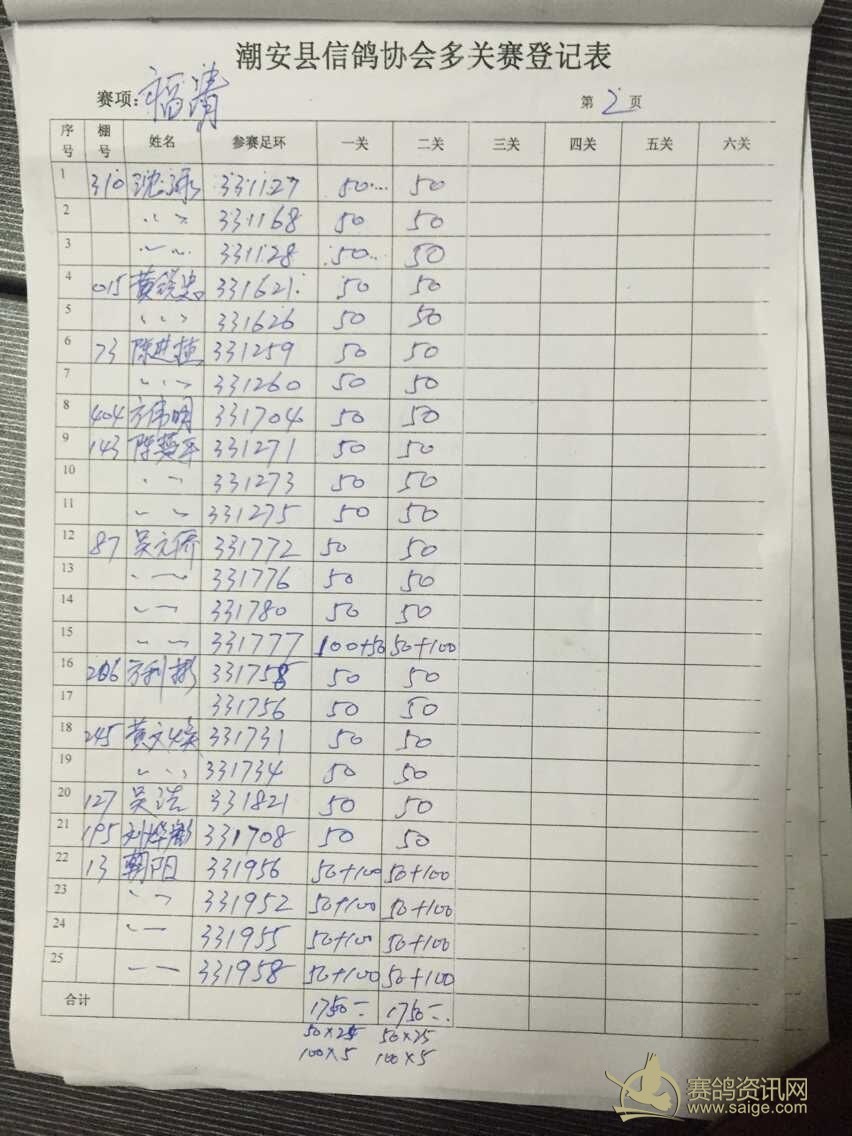 潮安县信鸽协会多关赛登记表
赛项: 福清 第 2 页
序号 棚号 姓名 参赛足环 一关 二关 三关 四关 五关 六关
1 310 331127 50 50
2 〃 331168 50 50
3 〃 331128 50 50
4 015 黄锐忠 331621 50 50
5 〃 331626 50 50
6 73 陈进植 331259 50 50
7 〃 331260 50 50
8 404 方伟明 331704 50 50
9 143 陈 331271 50 50
10 〃 331273 50 50
11 〃 331275 50 50
12 87 吴元侨 331772 50 50
13 〃 331776 50 50
14 〃 331780 50 50
15 〃 331777 100+50 50+100
16 206 方利彬 331758 50 50
17 331756 50 50
18 245 黄文焕 331731 50 50
19 〃 331734 50 50
20 127 吴浩 331821 50 50
21 195 刘烨 331708 50 50
22 13 朝阳 331956 50+100 50+100
23 〃 331952 50+100 50+100
24 〃 331955 50+100 50+100
25 〃 331958 50+100 50+100
合计 1750 1750
50×25 50×25
100×5 100×5
赛鸽资讯网
www.saige.com